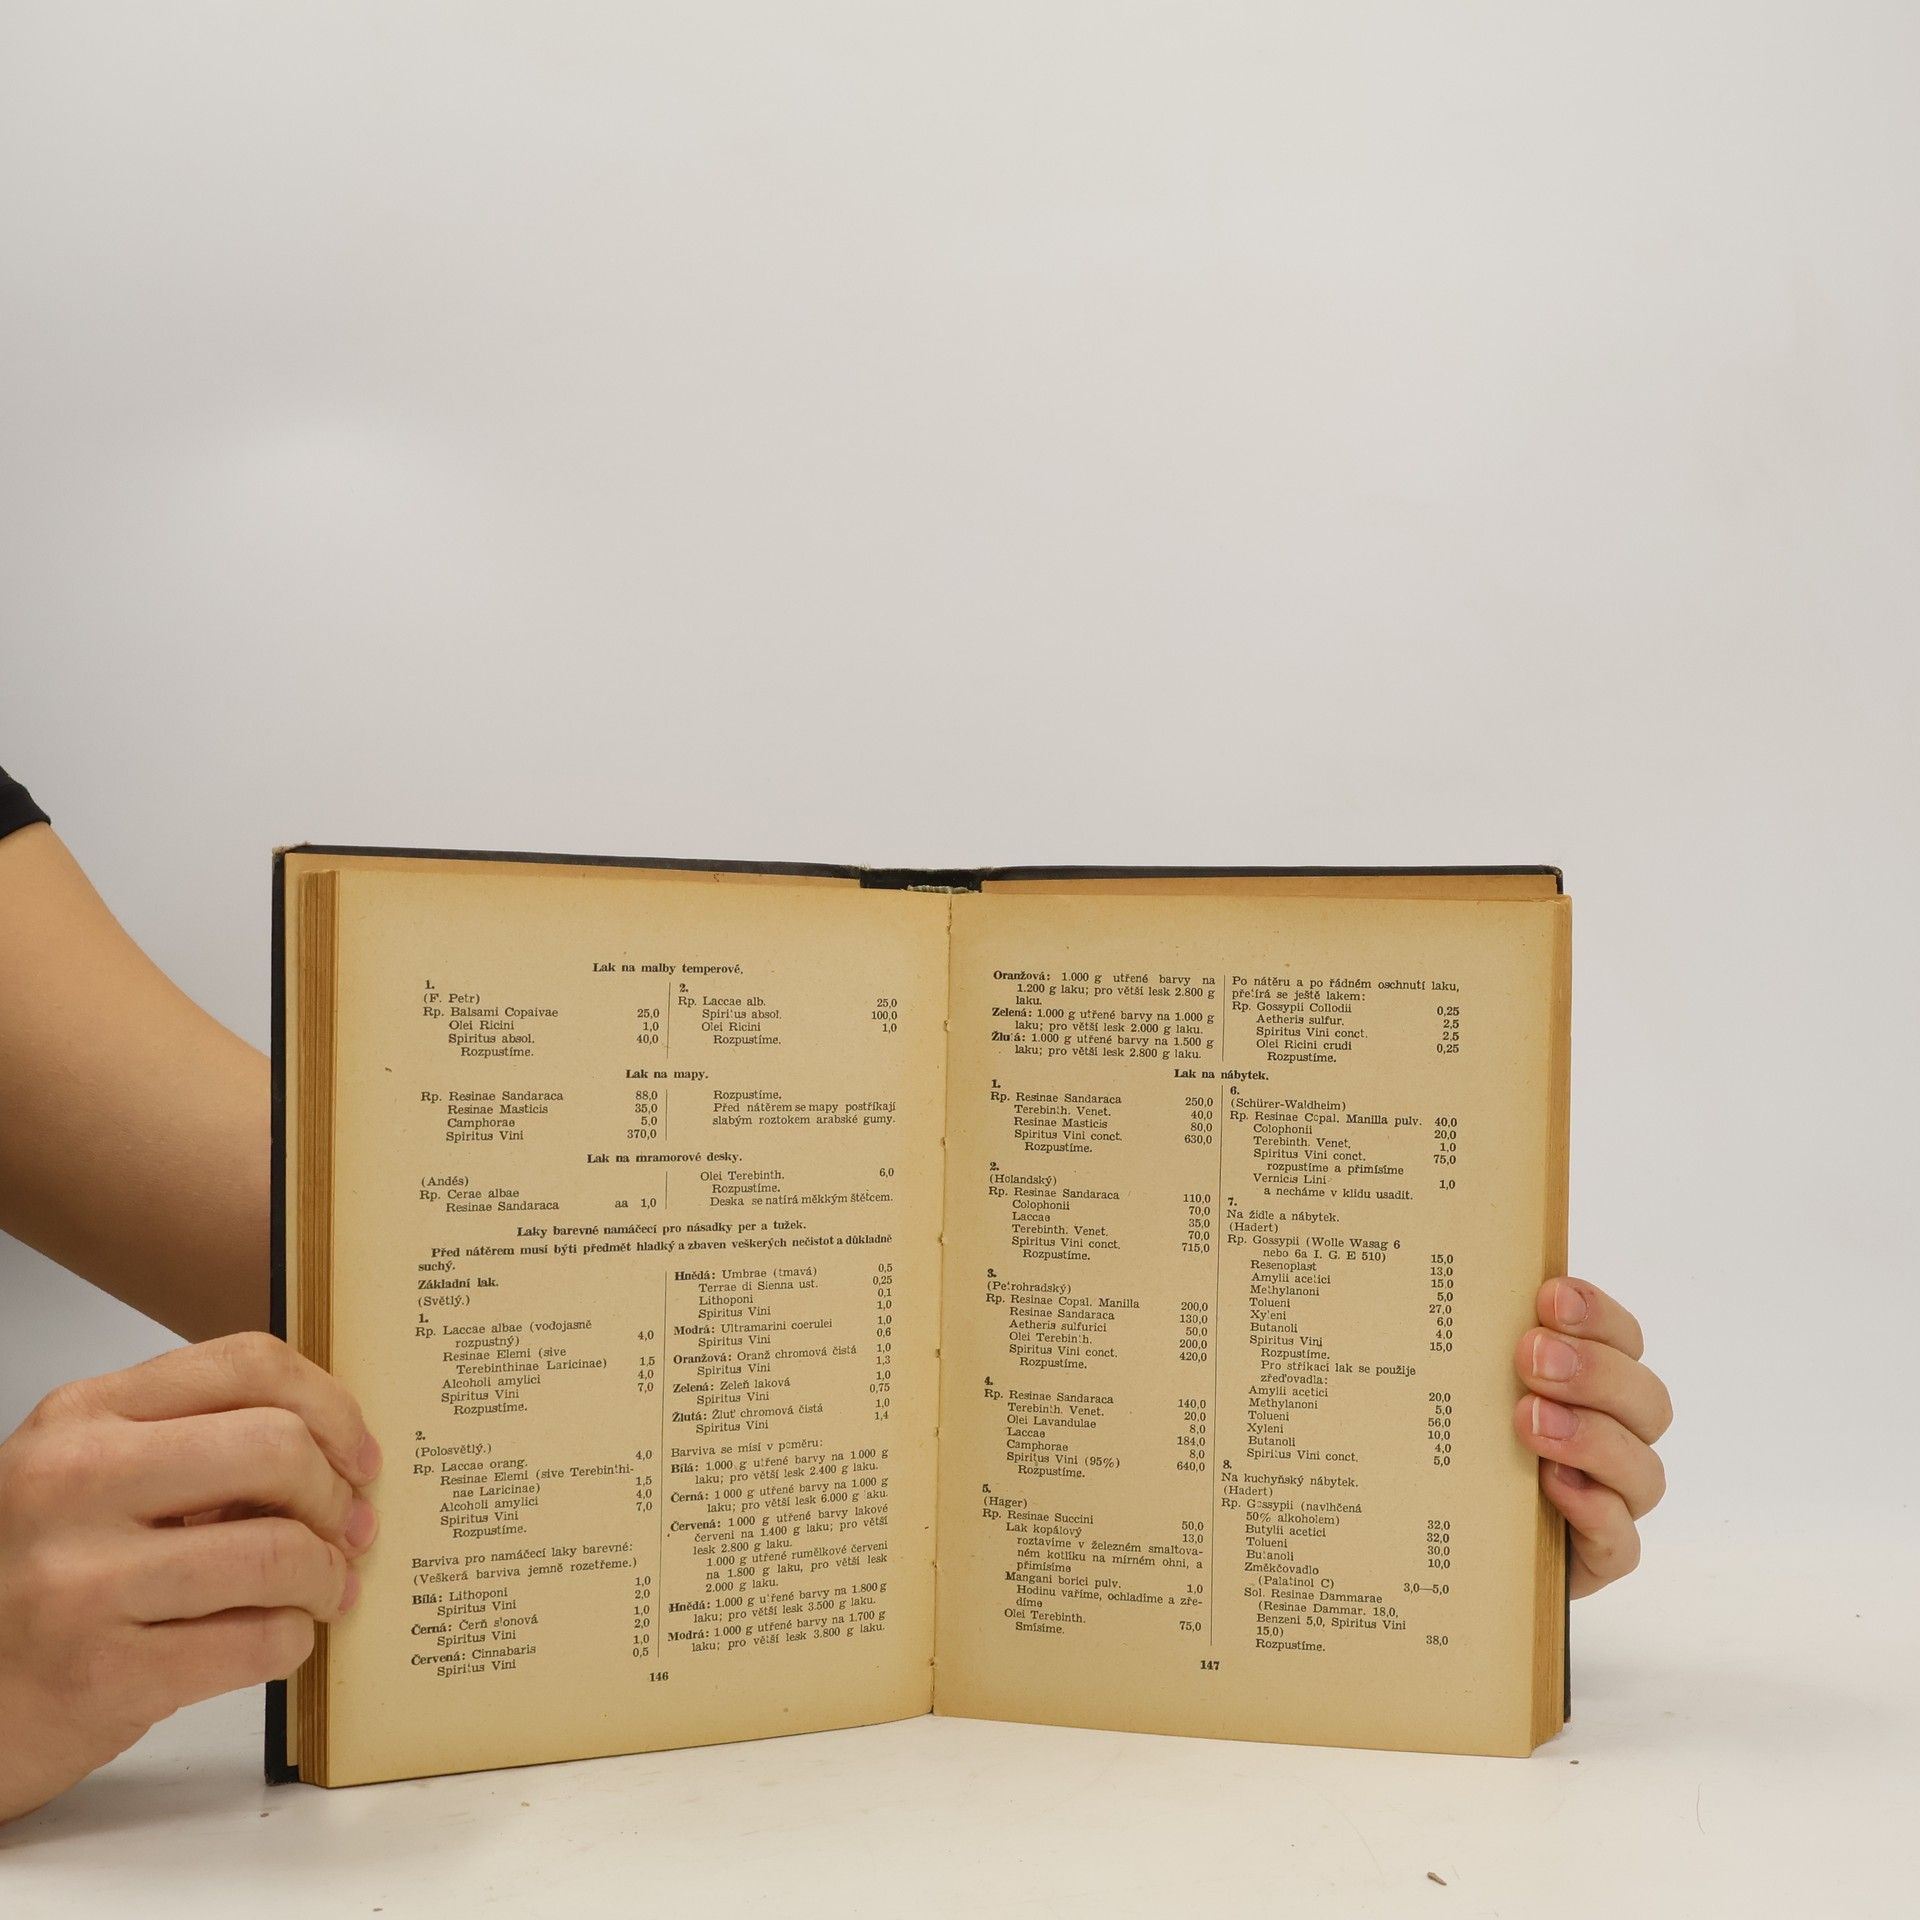 Lak na malby temperové.
1.
(F. Petr)
Rp. Balsami Copaivae 25,0
Olei Ricini 1,0
Spiritus absol. 40,0
Rozpustíme.
2.
Rp. Laccae alb. 25,0
Spiritus absol. 100,0
Olei Ricini 1,0
Rozpustíme.
Lak na mapy.
Rp. Resinae Sandaraca 88,0
Resinae Masticis 35,0
Camphorae 5,0
Spiritus Vini 370,0
Rozpustíme.
Před nátěrem se mapy postříkají
slabým roztokem arabské gumy.
Lak na mramorové desky.
(Andés)
Rp. Cerae albae
Resinae Sandaraca aa 1,0
Olei Terebinth. 6,0
Rozpustíme.
Deska se natírá měkkým štětcem.
Laky barevné namáčecí pro násadky per a tužek.
Před nátěrem musí býti předmět hladký a zbaven veškerých nečistot a důkladně
suchý.
Základní lak.
(Světlý.)
1.
Rp. Laccae albae (vodojasně
rozpustný) 4,0
Resinae Elemi (sive
Terebinthinae Laricinae) 1,5
Alcoholi amylici 4,0
Spiritus Vini 7,0
Rozpustíme.
2.
(Polosvětlý.)
Rp. Laccae orang. 4,0
Resinae Elemi (sive Terebinthi-
nae Laricinae) 1,5
Alcoholi amylici 4,0
Spiritus Vini 7,0
Rozpustíme.
Barviva pro namáčecí laky barevné:
(Veškerá barviva jemně rozetřeme.)
Bílá: Lithoponi 1,0
Spiritus Vini 2,0
Černá: Čerň slonová 1,0
Spiritus Vini 2,0
Červená: Cinnabaris 1,0
Spiritus Vini 0,5
Hnědá: Umbrae (tmavá) 0,5
Terrae di Sienna ust. 0,25
Lithoponi 0,1
Spiritus Vini 1,0
Modrá: Ultramarini coerulei 1,0
Spiritus Vini 0,6
Oranžová: Oranž chromová čistá 1,0
Spiritus Vini 1,3
Zelená: Zeleň laková 1,0
Spiritus Vini 0,75
Žlutá: Žluť chromová čistá 1,0
Spiritus Vini 1,4
Barviva se mísí v poměru:
Bílá: 1.000 g utřené barvy na 1.000 g
laku; pro větší lesk 2.400 g laku.
Černá: 1 000 g utřené barvy na 1.000 g
laku; pro větší lesk 6.000 g laku.
Červená: 1.000 g utřené barvy lakové
červeni na 1.400 g laku; pro větší
lesk 2.800 g laku.
1.000 g utřené rumělkové červeni
na 1.800 g laku, pro větší lesk
2.000 g laku.
Hnědá: 1.000 g utřené barvy na 1.800 g
laku; pro větší lesk 3.500 g laku.
Modrá: 1.000 g utřené barvy na 1.700 g
laku; pro větší lesk 3.800 g laku.
146
Oranžová: 1.000 g utřené barvy na
1.200 g laku; pro větší lesk 2.800 g
laku.
Zelená: 1.000 g utřené barvy na 1.000 g
laku; pro větší lesk 2.000 g laku.
Žlutá: 1.000 g utřené barvy na 1.500 g
laku; pro větší lesk 2.800 g laku.
Po nátěru a po řádném oschnutí laku,
přetírá se ještě lakem:
Rp. Gossypii Collodii 0,25
Aetheris sulfur. 2,5
Spiritus Vini conct. 2,5
Olei Ricini crudi 0,25
Rozpustíme.
Lak na nábytek.
1.
Rp. Resinae Sandaraca 250,0
Terebinth. Venet. 40,0
Resinae Masticis 80,0
Spiritus Vini conct. 630,0
Rozpustíme.
2.
(Holandský)
Rp. Resinae Sandaraca 110,0
Colophonii 70,0
Laccae 35,0
Terebinth. Venet. 70,0
Spiritus Vini conct. 715,0
Rozpustíme.
3.
(Petrohradský)
Rp. Resinae Copal. Manilla 200,0
Resinae Sandaraca 130,0
Aetheris sulfurici 50,0
Olei Terebinth. 200,0
Spiritus Vini conct. 420,0
Rozpustíme.
4.
Rp. Resinae Sandaraca 140,0
Terebinth. Venet. 20,0
Olei Lavandulae 8,0
Laccae 184,0
Camphorae 8,0
Spiritus Vini (95%) 640,0
Rozpustíme.
5.
(Hager)
Rp. Resinae Succini 50,0
Lak kopálový 13,0
roztavíme v železném smaltova-
ném kotlíku na mírném ohni, a
přimísíme
Mangani borici pulv. 1,0
Hodinu vaříme, ochladíme a zře-
díme
Olei Terebinth. 75,0
Smísíme.
6.
(Schürer-Waldheim)
Rp. Resinae Copal. Manilla pulv. 40,0
Colophonii 20,0
Terebinth. Venet. 1,0
Spiritus Vini conct. 75,0
rozpustíme a přimísíme
Vernicis Lini 1,0
a necháme v klidu usadit.
7.
Na židle a nábytek.
(Hadert)
Rp. Gossypii (Wolle Wasag 6
nebo 6a I. G. E 510) 15,0
Resenoplast 13,0
Amylii acetici 15 0
Methylanoni 5,0
Tolueni 27,0
Xyleni 6,0
Butanoli 4,0
Spiritus Vini 15,0
Rozpustíme.
Pro stříkací lak se použije
zřeďovadla:
Amylii acetici 20,0
Methylanoni 5,0
Tolueni 56,0
Xyleni 10,0
Butanoli 4,0
Spiritus Vini conct. 5,0
8.
Na kuchyňský nábytek.
(Hadert)
Rp. Gossypii (navlhčená
50% alkoholem) 32,0
Butylii acetici 32,0
Tolueni 30,0
Butanoli 10,0
Změkčovadlo
(Palatinol C) 3,0—5,0
Sol. Resinae Dammarae
(Resinae Dammar. 18,0,
Benzeni 5,0, Spiritus Vini
15,0) 38,0
Rozpustíme.
147